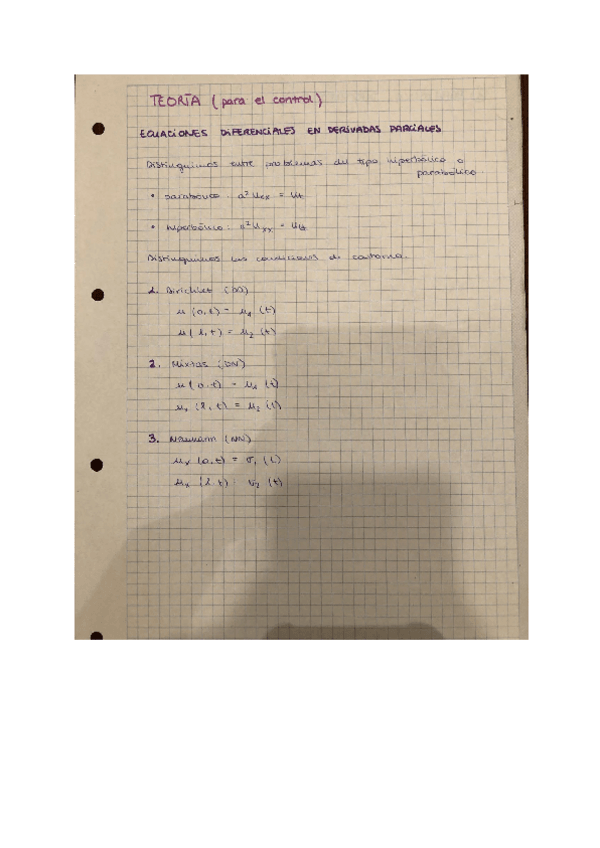 TEORÍA (para el control)
ECUACIONES DIFERENCIALES EN DERIVADAS PARCIALES
Distinguimos entre problemas del tipo hiperbólico o
parabólico.
• parabólico: a² u_xx = u_t
• hiperbólico: a² u_xx = u_tt
Distinguimos las condiciones de contorno.
1. Dirichlet (DD)
u (0,t) = μ₁ (t)
u (l,t) = μ₂ (t)
2. Mixtas (DN)
u (0,t) = μ₁ (t)
u_x (l,t) = μ₂ (t)
3. Neumann (NN)
u_x (0,t) = σ₁ (t)
u_x (l,t) = σ₂ (t)